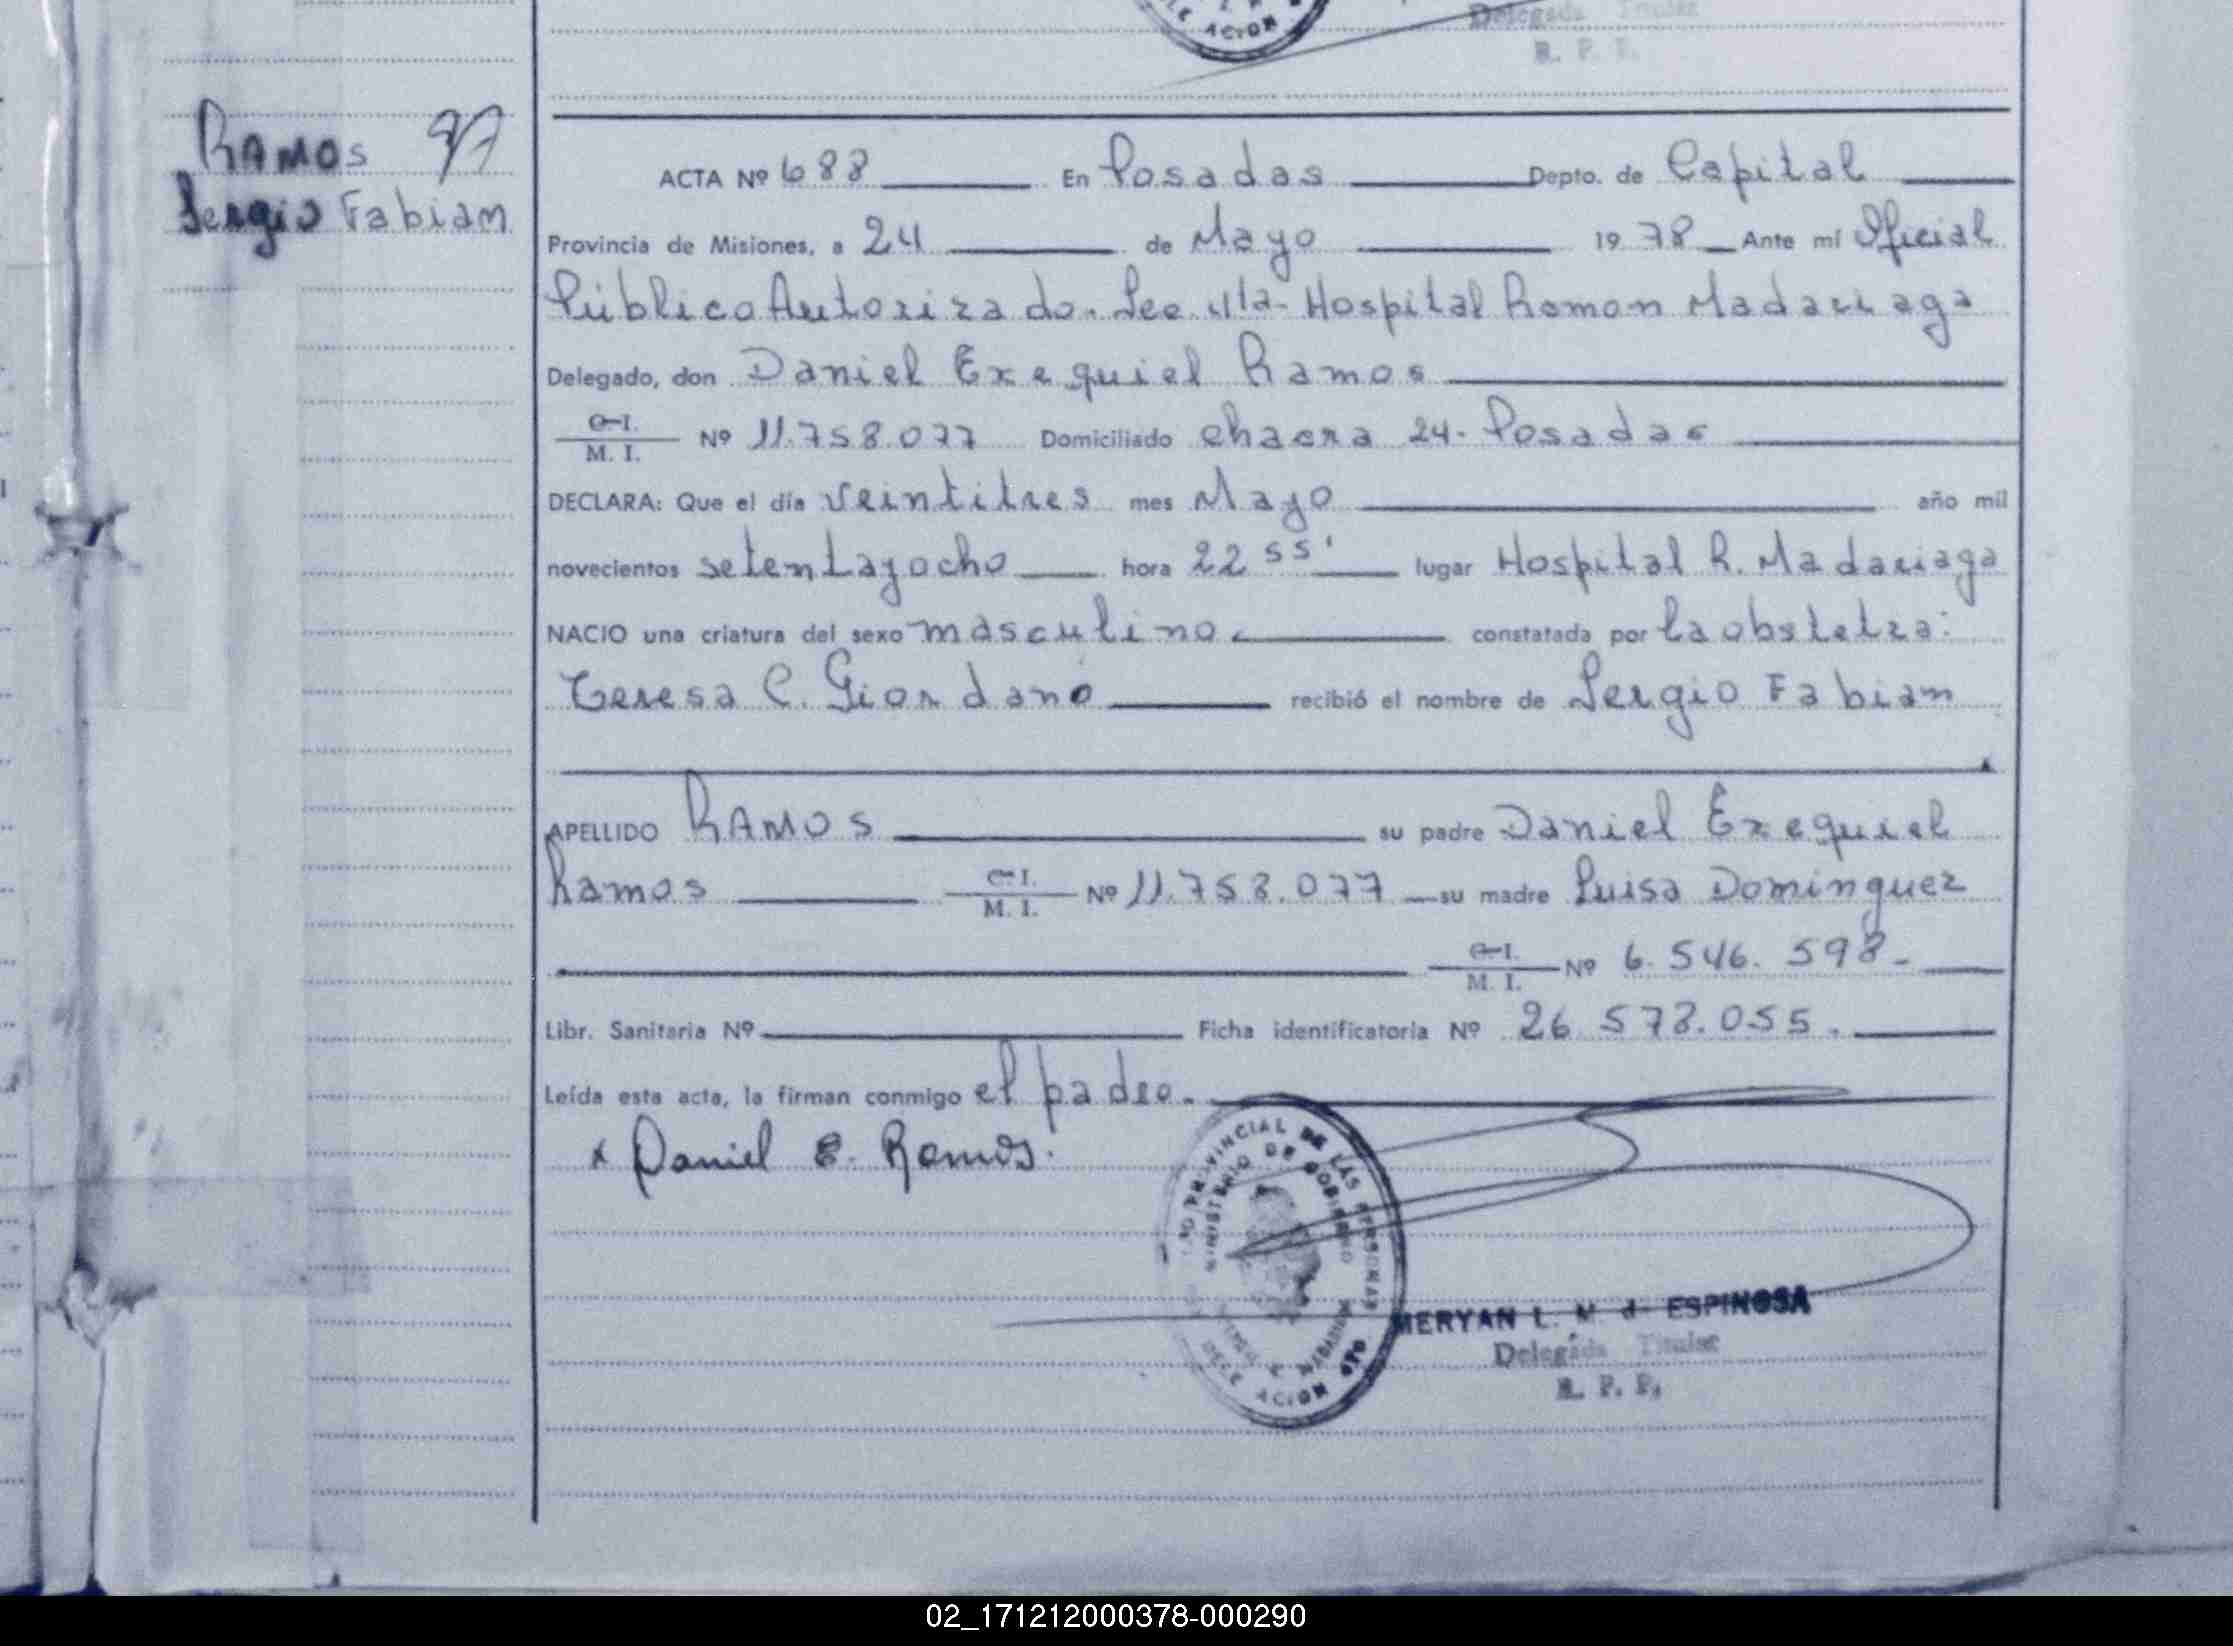 ACION
Delegada Titular
R. P. P.
RAMOS
Sergio Fabian
ACTA Nº 688 En Posadas Depto. de Capital
Provincia de Misiones, a 24 de Mayo 19 78 Ante mí Oficial
Público Autorizado. Sec. 4ta- Hospital Ramon Madariaga
Delegado, don Daniel Exequiel Ramos
C.I.
M. I. Nº 11.758.077 Domiciliado chacra 24- Posadas
DECLARA: Que el día veintitres mes Mayo año mil
novecientos setentayocho hora 22 55' lugar Hospital R. Madariaga
NACIO una criatura del sexo masculino. constatada por la obstetra:
Teresa C. Giordano recibió el nombre de Sergio Fabian
APELLIDO RAMOS su padre Daniel Exequiel
Ramos C.I.
M. I. Nº 11.758.077 su madre Luisa Dominguez
C.I.
M. I. Nº 6.546.598-
Libr. Sanitaria Nº Ficha identificatoria Nº 26 578.055.
Leída esta acta, la firman conmigo el padre.
x Daniel E. Ramos.
PROVINCIAL DE LAS PERSONAS
MINISTERIO DE GOBIERNO
MERYAN L. M de ESPINOSA
Delegada Titular
R. P. P.
02_171212000378-000290